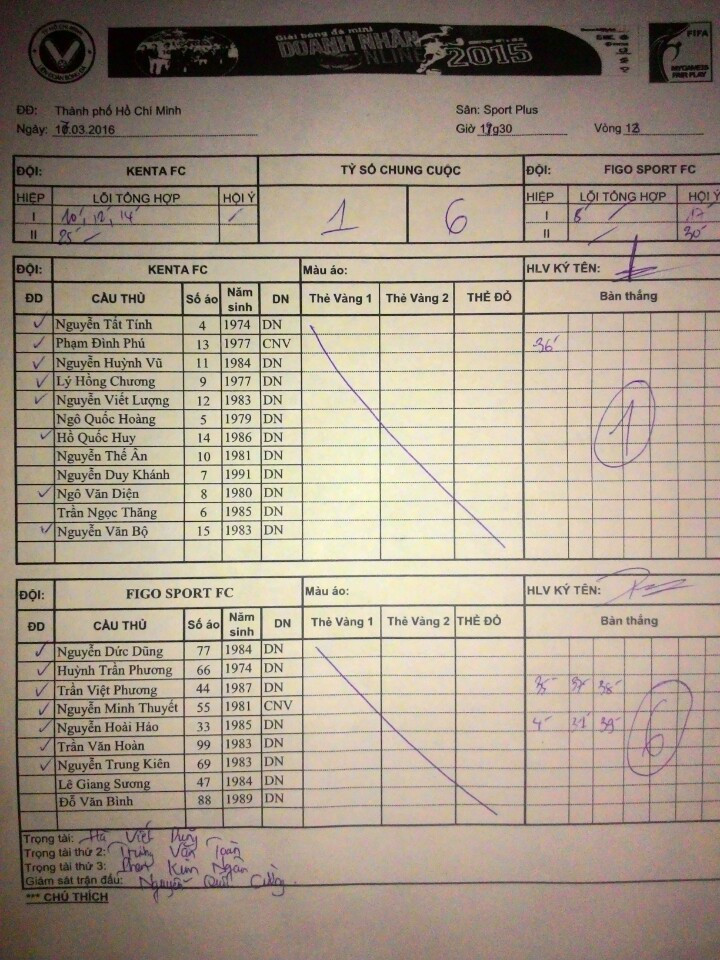 TP HỒ CHÍ MINH
LIÊN ĐOÀN BÓNG ĐÁ
Giải bóng đá mini
DOANH NHÂN
ONLINE 2015
FIFA
MY GAME IS
FAIR PLAY
ĐĐ: Thành phố Hồ Chí Minh Sân: Sport Plus
Ngày: 17.03.2016 Giờ 19g30 Vòng 13
ĐỘI: KENTA FC TỶ SỐ CHUNG CUỘC ĐỘI: FIGO SPORT FC
HIỆP LỖI TỔNG HỢP HỘI Ý 1 6 HIỆP LỖI TỔNG HỢP HỘI Ý
I 10' 12' 14' I 8' 17'
II 25' II 30'
ĐỘI: KENTA FC Màu áo: HLV KÝ TÊN:
ĐD CẦU THỦ Số áo Năm sinh DN Thẻ Vàng 1 Thẻ Vàng 2 THẺ ĐỎ Bàn thắng
Nguyễn Tất Tính 4 1974 DN
Phạm Đình Phú 13 1977 CNV 36'
Nguyễn Huỳnh Vũ 11 1984 DN
Lý Hồng Chương 9 1977 DN
Nguyễn Viết Lượng 12 1983 DN
Ngô Quốc Hoàng 5 1979 DN 1
Hồ Quốc Huy 14 1986 DN
Nguyễn Thế Ân 10 1981 DN
Nguyễn Duy Khánh 7 1991 DN
Ngô Văn Diện 8 1980 DN
Trần Ngọc Thăng 6 1985 DN
Nguyễn Văn Bộ 15 1983 DN
ĐỘI: FIGO SPORT FC Màu áo: HLV KÝ TÊN:
ĐD CẦU THỦ Số áo Năm sinh DN Thẻ Vàng 1 Thẻ Vàng 2 THẺ ĐỎ Bàn thắng
Nguyễn Đức Dũng 77 1984 DN
Huỳnh Trần Phương 66 1974 DN
Trần Việt Phương 44 1987 DN 35' 37' 38'
Nguyễn Minh Thuyết 55 1981 CNV
Nguyễn Hoài Hảo 33 1985 DN 4' 21' 39' 6
Trần Văn Hoàn 99 1983 DN
Nguyễn Trung Kiên 69 1983 DN
Lê Giang Sương 47 1984 DN
Đỗ Văn Bình 88 1989 DN
Trọng tài: Hà Viết Dũng
Trọng tài thứ 2: Trương Văn Toàn
Trọng tài thứ 3: Phan Kim Ngân
Giám sát trận đấu: Nguyễn Quốc Cường
*** CHÚ THÍCH